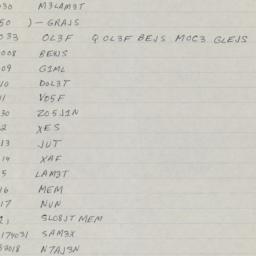 030 M3LAM3T
50 ) - GRAJS
033 OL3F Q OL3F BEJS MOC3 GLEJS
008 BENS
09 G1ML
10 DOL3T
11 VO5F
30 ZO5J1N
2 XES
13 JUT
14 XAF
5 LAM3T
16 MEM
17 NUN
21 SLO8JT MEM
174031 SAM3X
32018 N7AJ3N